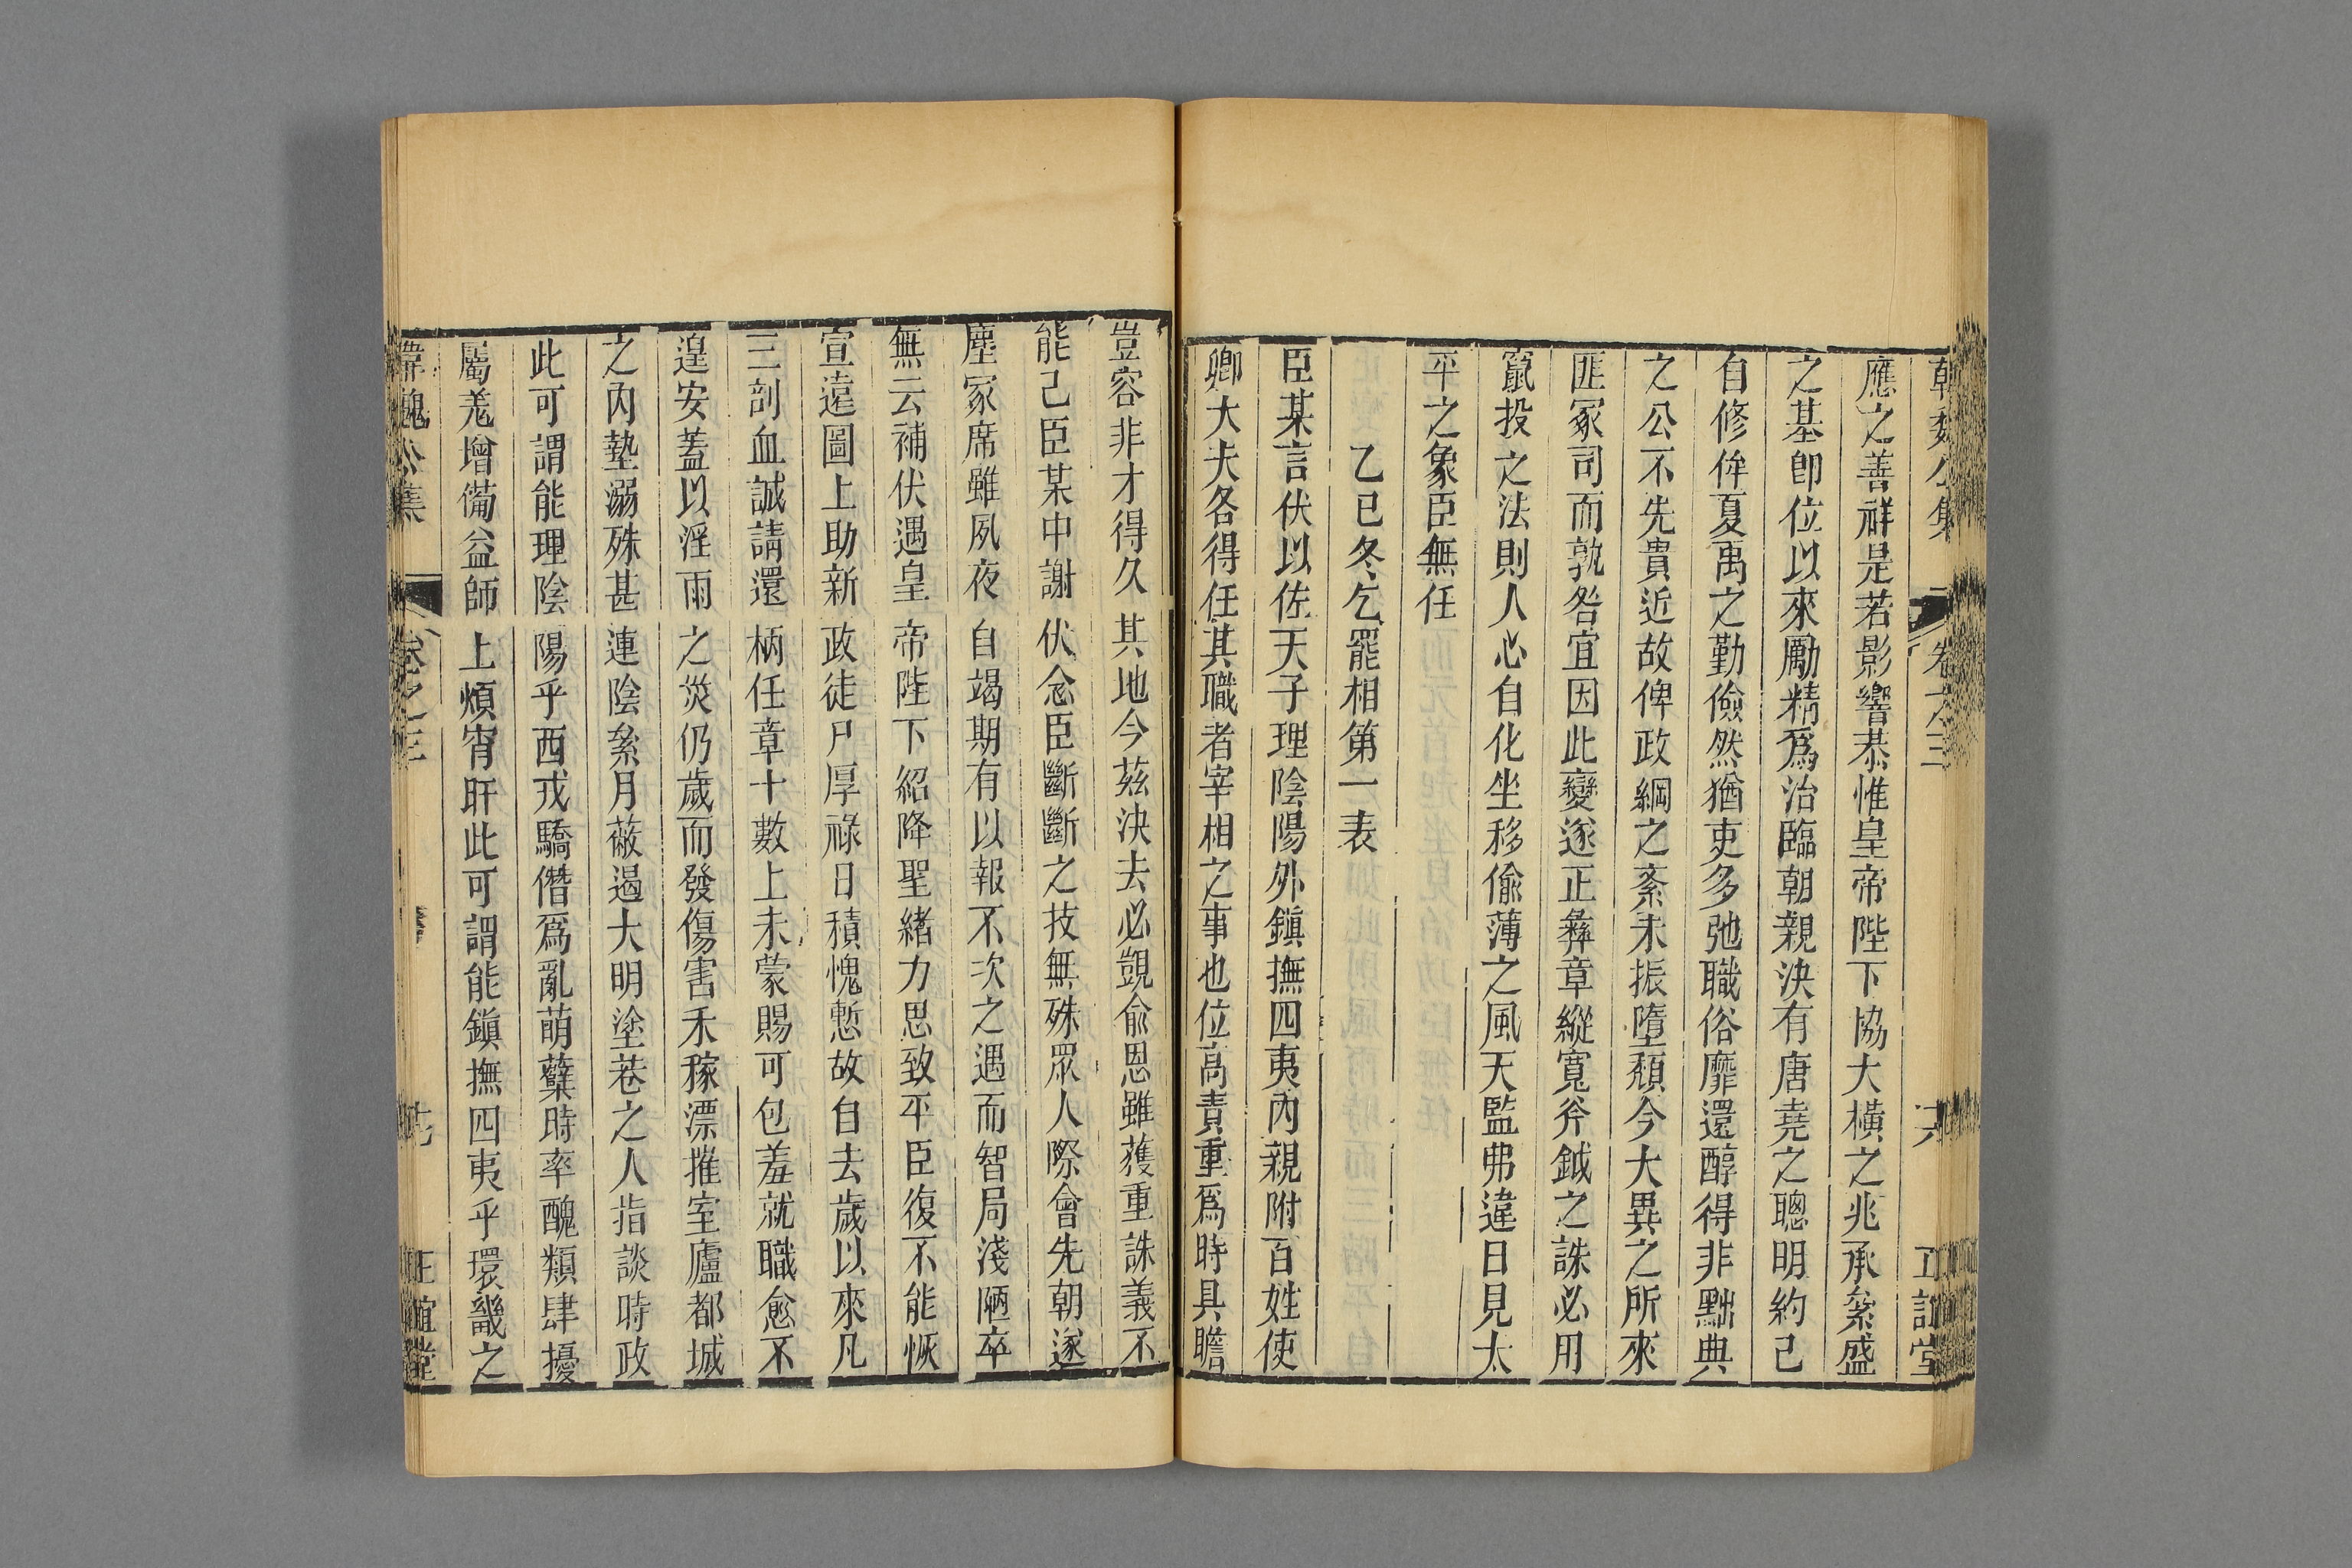 韓魏公集 卷之三 六 正誼堂
應之善祥是若影響恭惟皇帝陛下協大橫之兆承絫盛
之基卽位以來勵精爲治臨朝親決有唐堯之聰明約己
自修侔夏禹之勤儉然猶吏多弛職俗靡還醇得非黜典
之公不先貴近故俾政綱之紊未振墮頹今大異之所來
匪冢司而孰咎宜因此變遂正彝章縱寬斧鉞之誅必用
竄投之法則人心自化坐移偷薄之風天監弗違日見太
平之象臣無任
乙巳冬乞罷相第一表
臣某言伏以佐天子理陰陽外鎭撫四夷內親附百姓使
卿大夫各得任其職者宰相之事也位高責重爲時具瞻
豈容非才得久其地今茲決去必覬俞恩雖獲重誅義不
能己臣某中謝伏念臣斷斷之技無殊眾人際會先朝遂
塵冢席雖夙夜自竭期有以報不次之遇而智局淺陋卒
無云補伏遇皇帝陛下紹降聖緒力思致平臣復不能恢
宣遠圖上助新政徒尸厚祿日積愧慙故自去歲以來凡
三剖血誠請還柄任章十數上未蒙賜可包羞就職愈不
遑安蓋以淫雨之災仍歲而發傷害禾稼漂摧室廬都城
之內墊溺殊甚連陰絫月蔽遏大明塗巷之人指談時政
此可謂能理陰陽乎西戎驕僭爲亂萌蘖時率醜類肆擾
屬羗增備益師上煩宵旰此可謂能鎭撫四夷乎環畿之
韓魏公集 卷之三 七 正誼堂